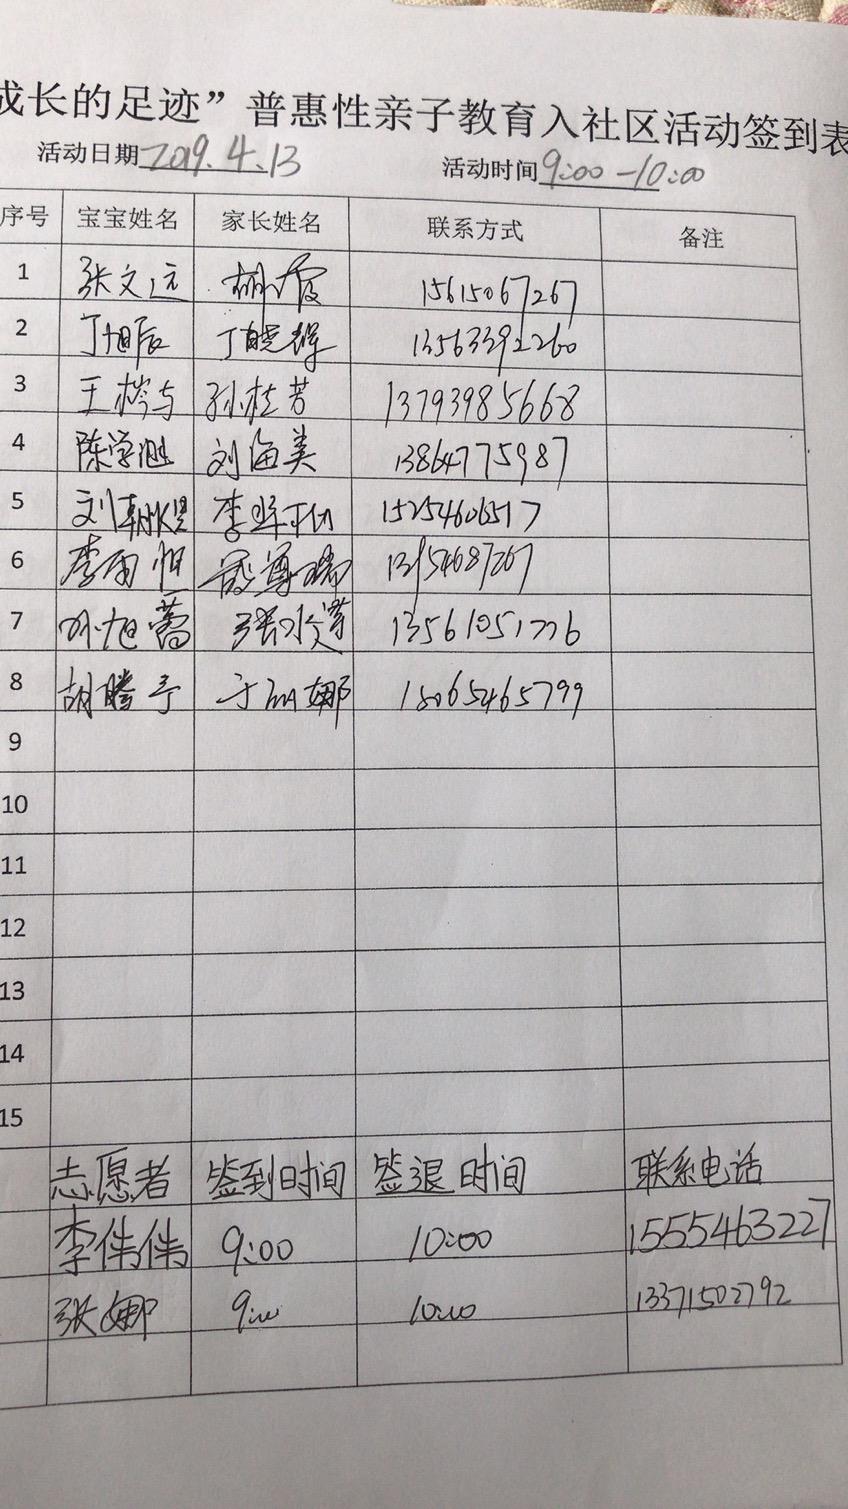 成长的足迹”普惠性亲子教育入社区活动签到表
活动日期 2019.4.13 活动时间 9:00-10:00
序号 宝宝姓名 家长姓名 联系方式 备注
1 张文远 15615067267
2 丁旭辰 丁晓辉 13563392260
3 王梣与 孙桂芳 13793985668
4 陈学 刘海美 13864775987
5 刘 李 15254606517
6 李雨恒 13954687267
7 孙旭蕾 张 13561051776
8 胡腾予 于 娜 15065465799
9
10
11
12
13
14
15
志愿者 签到时间 签退时间 联系电话
李伟伟 9:00 10:00 15554463227
张娜 9:00 10:00 13371502792